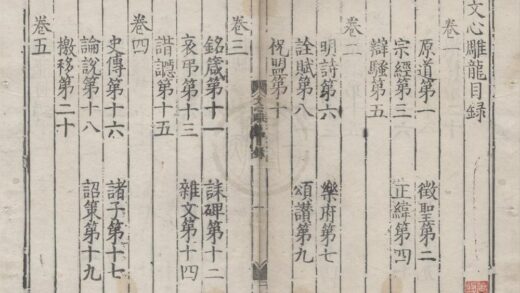 文心雕龍目録
卷一
原道第一 徵聖第二
宗經第三 正緯第四
辯騷第五
卷二
明詩第六 樂府第七
詮賦第八 頌讚第九
祝盟第十
卷三
銘箴第十一 誄碑第十二
哀弔第十三 雜文第十四
諧讔第十五
卷四
史傳第十六 諸子第十七
論說第十八 詔策第十九
檄移第二十
卷五